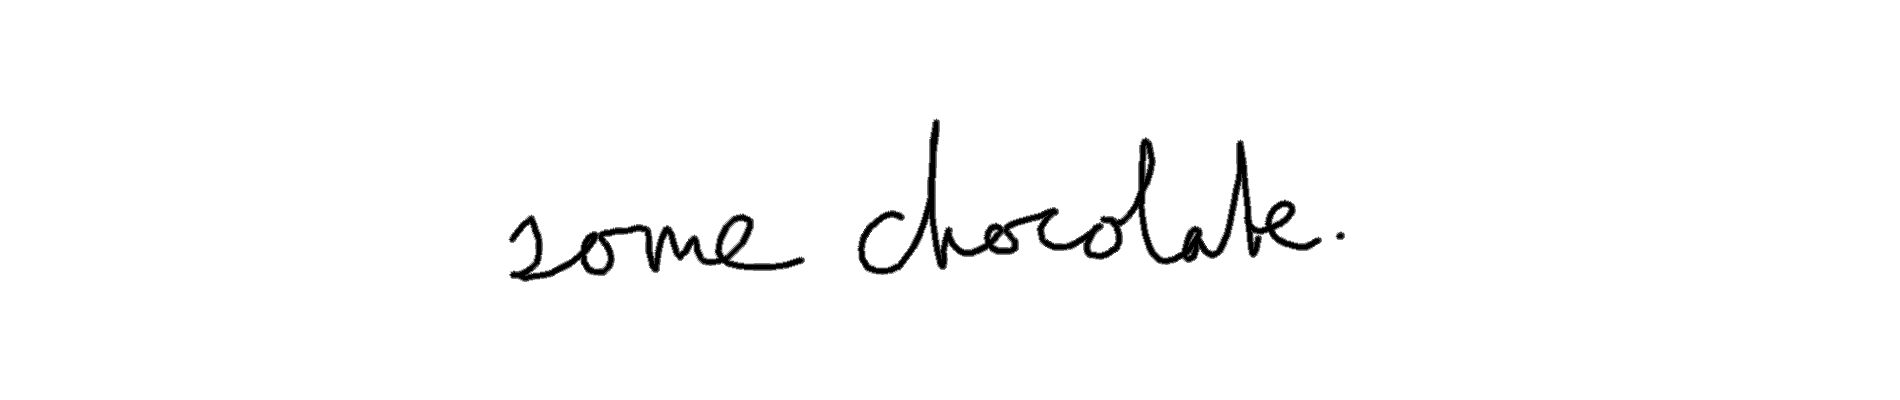 some chocolate.